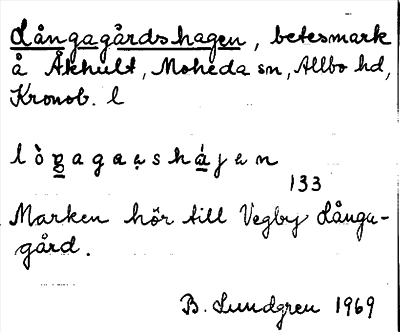 Långagårdshagen, betesmark
å Åkhult, Moheda sn, Allbo hd,
Kronob. l
lò̱gagaa̤shá̱jen
133
Marken hör till Vegby Långa-
gård.
B. Lundgren 1969